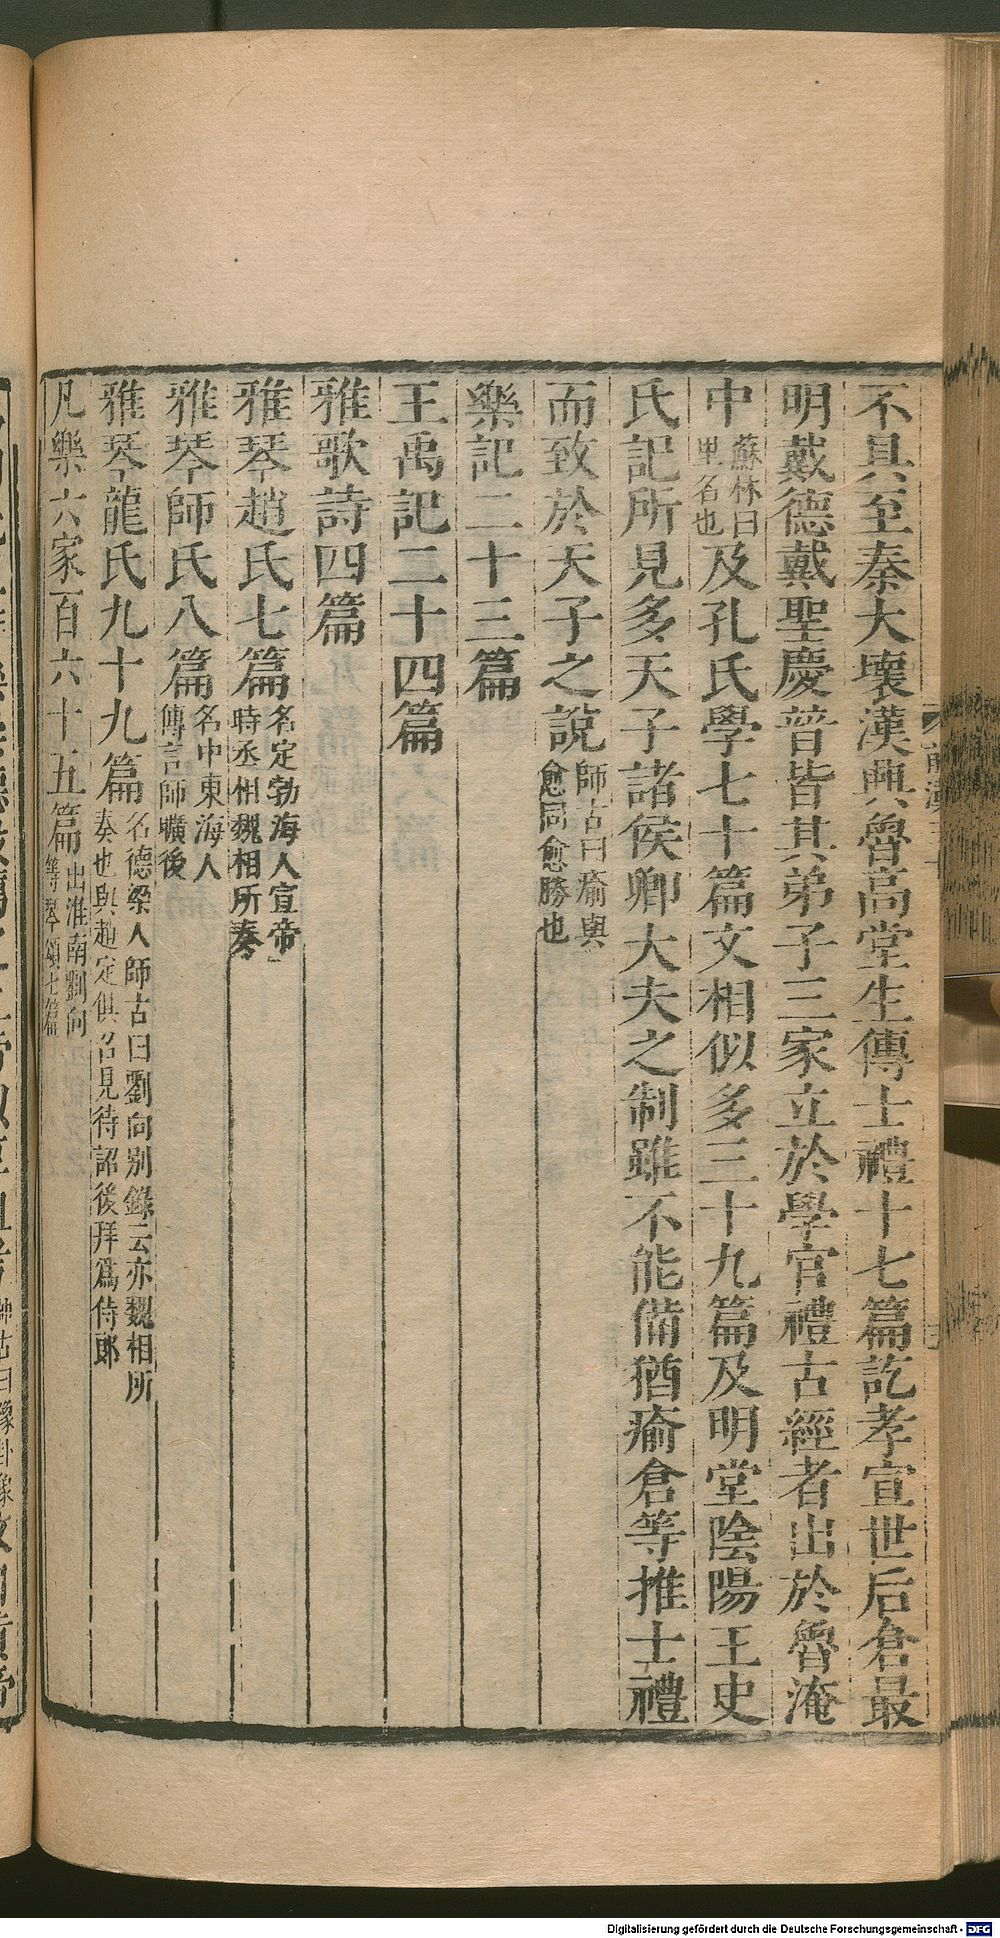 不具至秦大壞漢興魯高堂生傳士禮十七篇訖孝宣世后倉最
明戴德戴聖慶普皆其弟子三家立於學官禮古經者出於魯淹
中蘇林曰里名也及孔氏學七十篇文相似多三十九篇及明堂陰陽王史
氏記所見多天子諸侯卿大夫之制雖不能備猶瘉倉等推士禮
而致於天子之說師古曰瘉與愈同愈勝也
樂記二十三篇
王禹記二十四篇
雅歌詩四篇
雅琴趙氏七篇名定勃海人宣帝時丞相魏相所奏
雅琴師氏八篇名中東海人傳言師曠後
雅琴龍氏九十九篇名德梁人師古曰劉向別錄云亦魏相所奏也與趙定俱召見待詔後拜爲侍郎
凡樂六家百六十五篇出淮南劉向等琴頌七篇
Digitalisierung gefördert durch die Deutsche Forschungsgemeinschaft - DFG